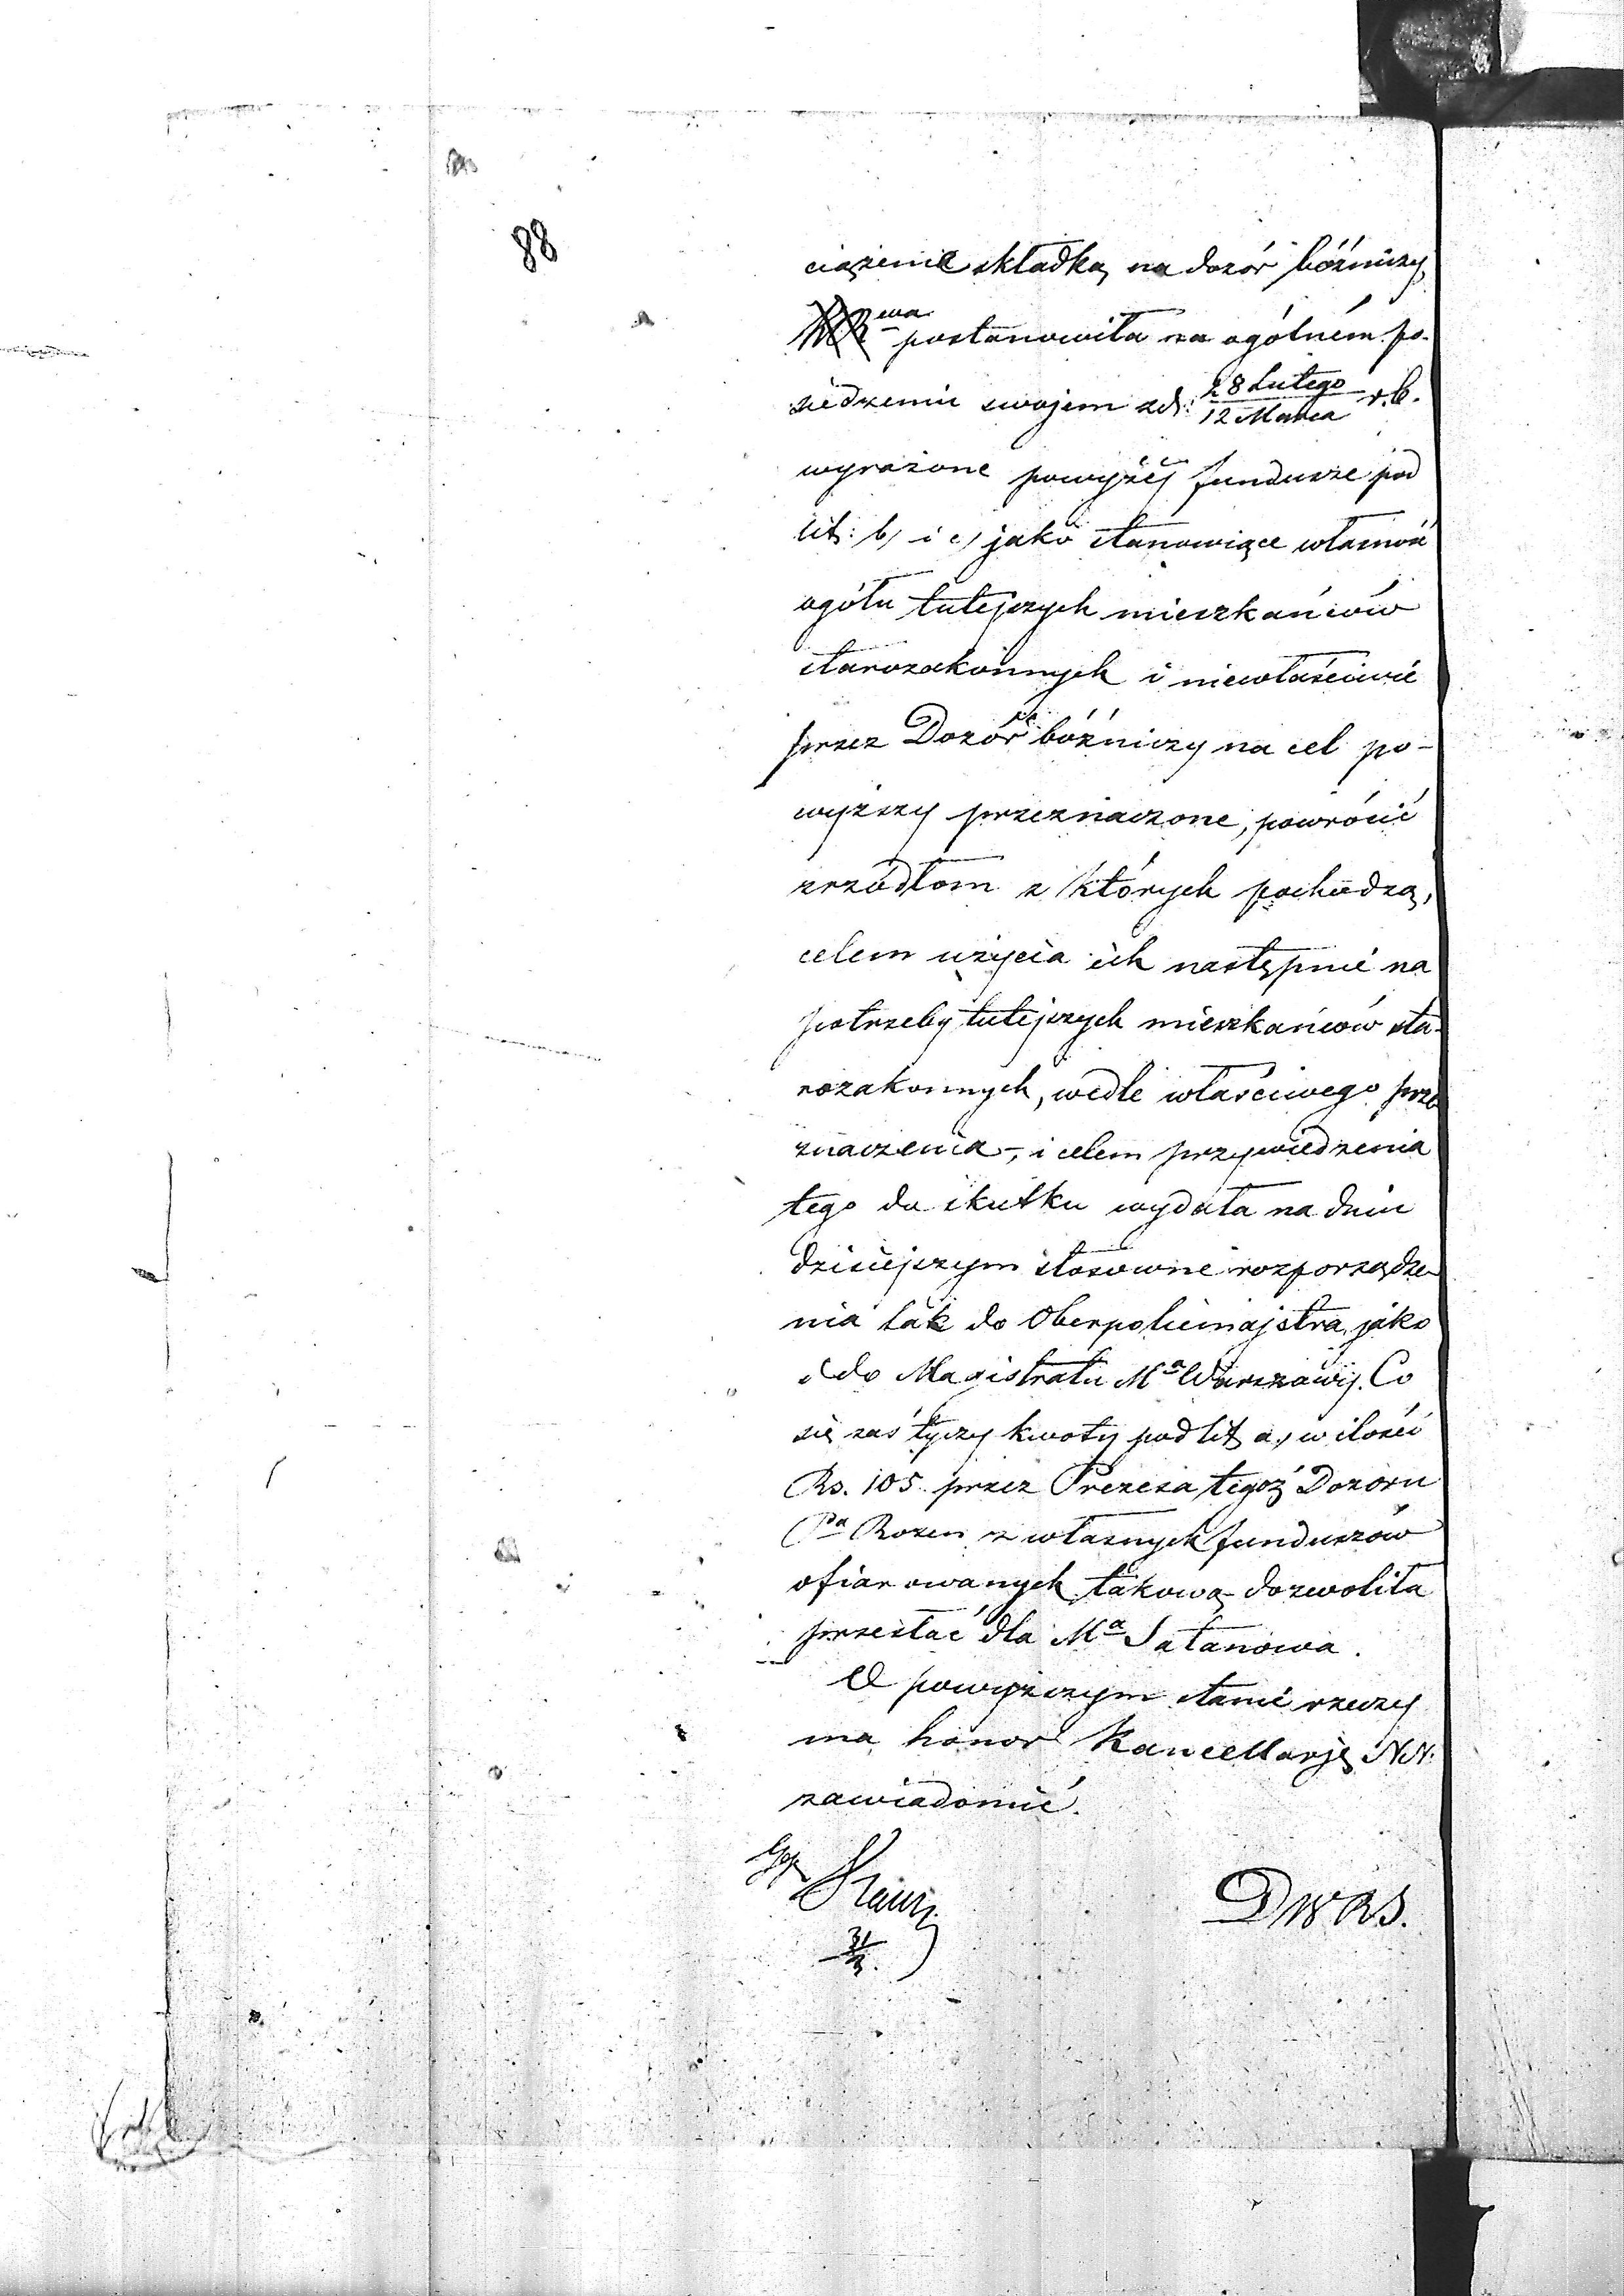 88
ciążenie składką na dozór bóźniczy,
postanowiła na ogólném po-
siedzeniu swojem z d: 28 Lutego / 12 Marca r. b.
wyrażone powyżéj fundusze pod
lit: b/ i c/ jako stanowiące własność
ogółu tutejszych mieszkańców
starozakonnych i niewłaściwie
przez Dozór bóźniczy na cel po-
wyższy przeznaczone, powrócić
zrzódłom z których pochodzą,
celem użycia ich następnie na
potrzeby tutejszych mieszkańców sta-
rozakonnych, wedle właściwego prze
znaczenia, i celem przywiedzenia
tego do skutku wydała na dniu
dzisiejszym stosowne rozporządze-
nia tak do Oberpolicmajstra, jako
i do Magistratu Mª Warszawy. Co
się zaś tyczy kwoty pod lit a, w ilości
Rs. 105 przez Prezesa tegoż Dozoru
Pª Rosen z własnych funduszów
ofiarowanych takową dozwoliła
przesłać dla Mª Satanowa.
O powyższym stanie rzeczy
ma honor Kancellarję NN.
zawiadomić.
DWRS.